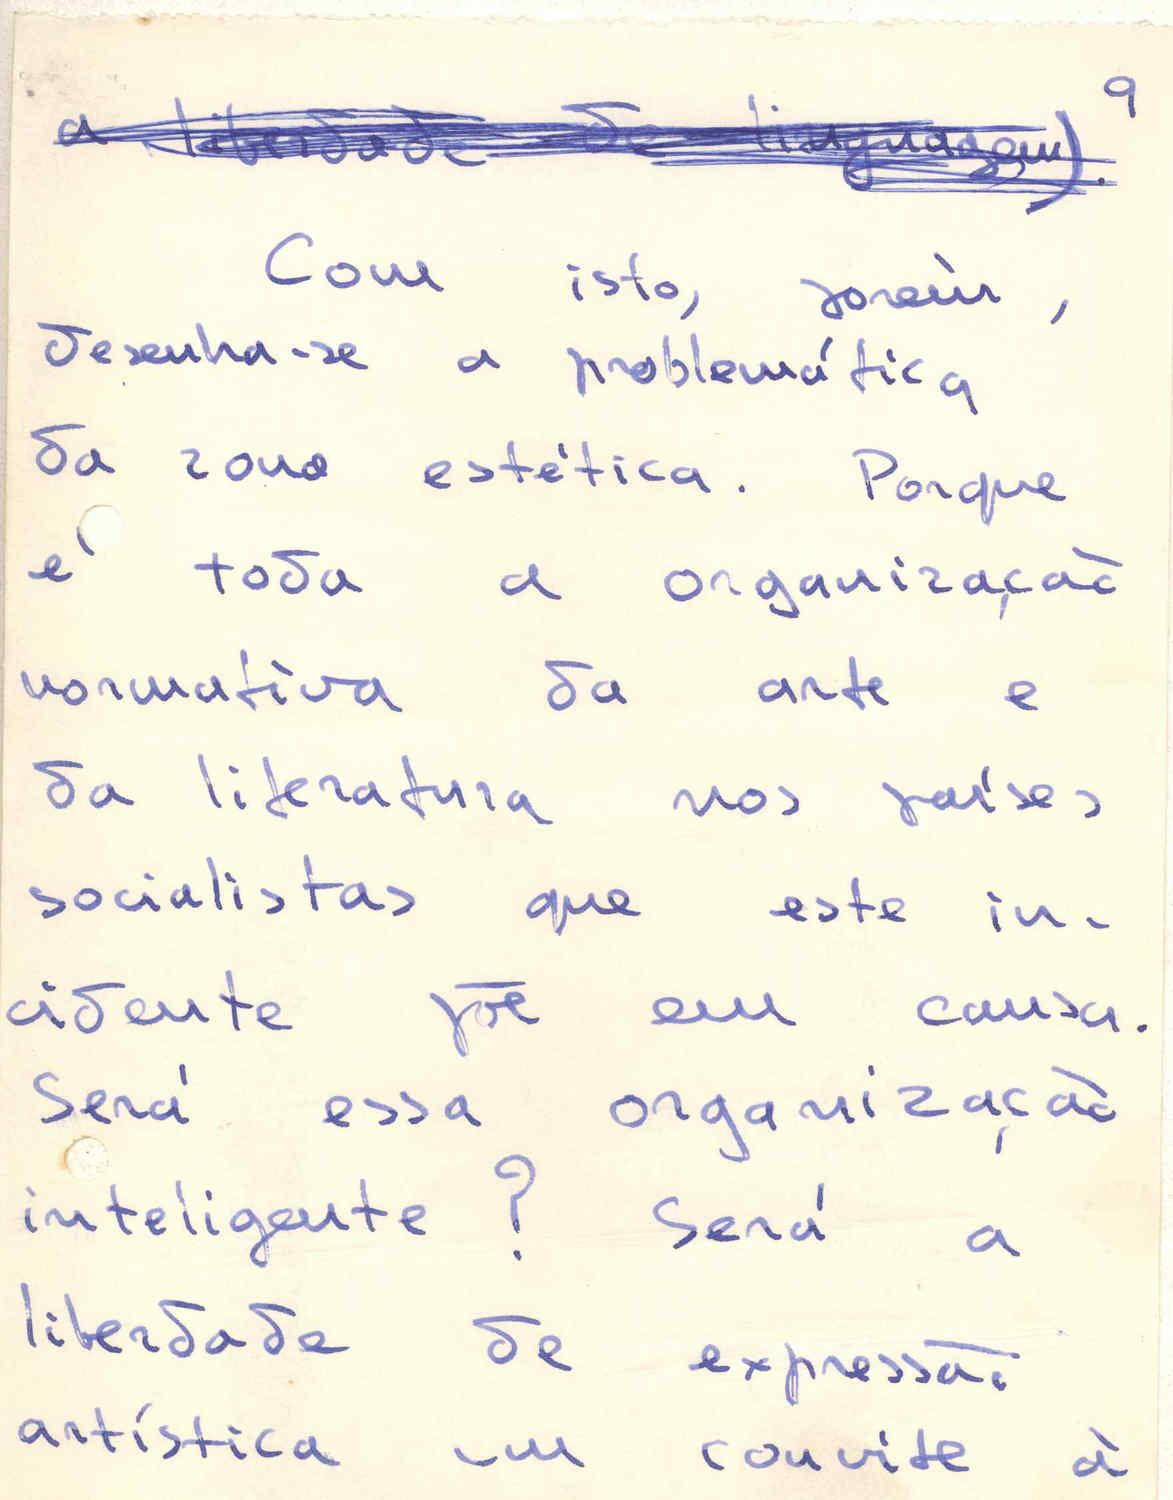 9
a liberdade de linguagem).
Com isto, porém,
desenha-se a problemática
da zona estética. Porque
é toda a organização
normativa da arte e
da literatura nos países
socialistas que este in-
cidente põe em causa.
Será essa organização
inteligente? Será a
liberdade de expressão
artística um convite à